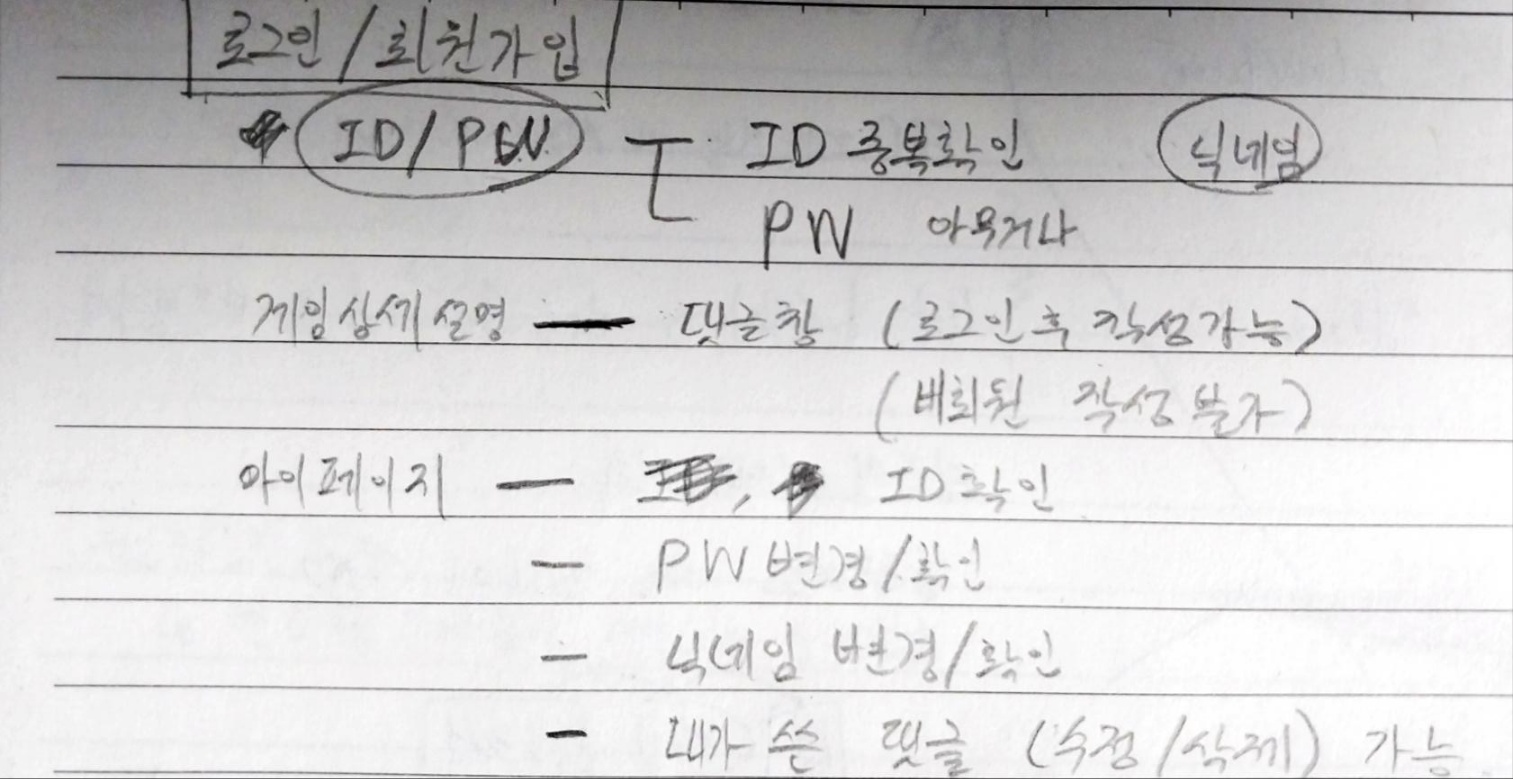 로그인 / 회원가입
ID / PW ID 중복확인 닉네임
PW 아무거나
게임상세설명 — 댓글창 (로그인 후 작성가능)
(비회원 작성불가)
마이페이지 — ID 확인
— PW 변경/확인
— 닉네임 변경/확인
— 내가 쓴 댓글 (수정/삭제) 가능